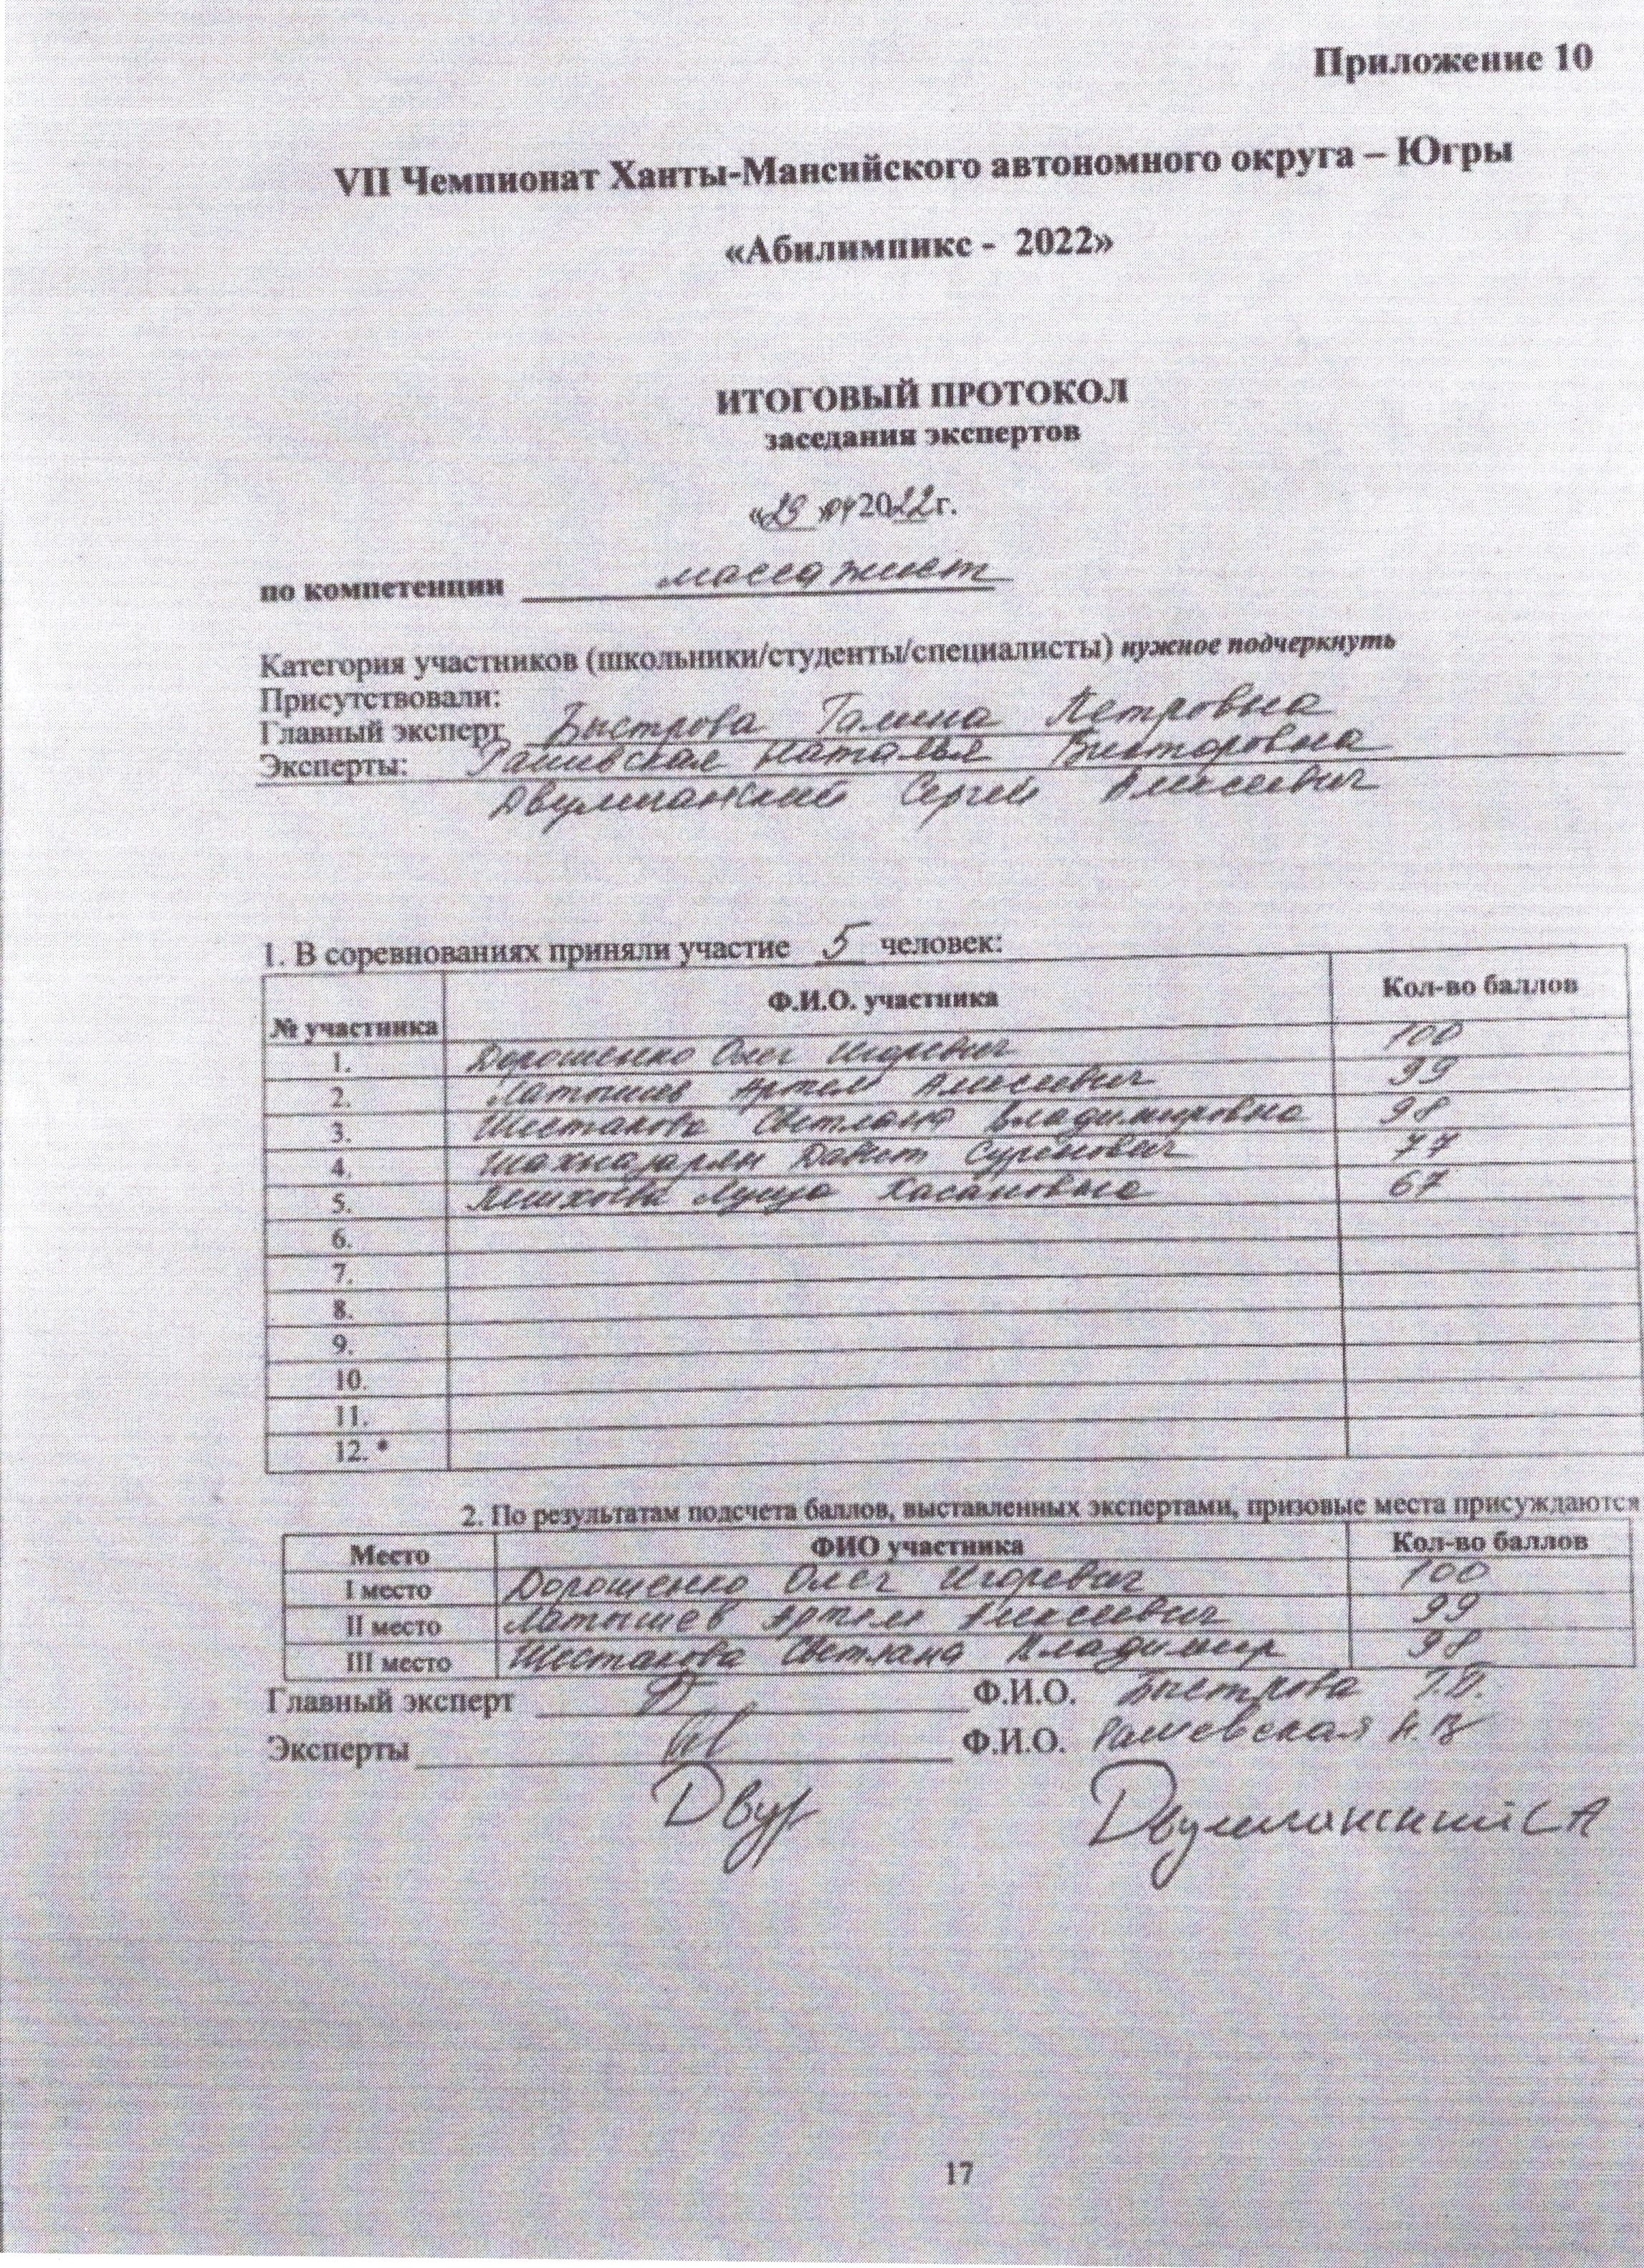 Приложение 10
VII Чемпионат Ханты-Мансийского автономного округа – Югры
«Абилимпикс - 2022»
ИТОГОВЫЙ ПРОТОКОЛ
заседания экспертов
«29 »04 2022г.
по компетенции массажист
Категория участников (школьники/студенты/специалисты) нужное подчеркнуть
Присутствовали:
Главный эксперт Быстрова Галина Петровна
Эксперты: Рашевская Наталья Викторовна
Сергей Алексеевич
1. В соревнованиях приняли участие 5 человек:
№ участника Ф.И.О. участника Кол-во баллов
1. Дорошенко Олег Игоревич 100
2. Латышев Артем Алексеевич 99
3. Шестакова Светлана Владимировна 98
4. Шахназарян Давит Суренович 77
5. Хасановна 67
6.
7.
8.
9.
10.
11.
12. *
2. По результатам подсчета баллов, выставленных экспертами, призовые места присуждаются
Место ФИО участника Кол-во баллов
I место Дорошенко Олег Игоревич 100
II место Латышев Артем Алексеевич 99
III место Шестакова Светлана Владимир 98
Главный эксперт Ф.И.О. Быстрова Г.П.
Эксперты Ф.И.О. Рашевская Н.В
17